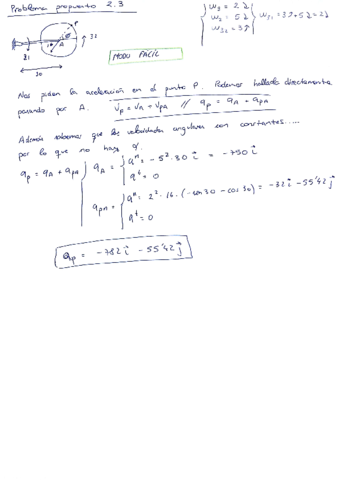 Problema propuesto 2.3
P
A
3ↄ
30
MODO FACIL
Nos piden la aceleración en el punto P. Podemos hallarla directamente
pasando por A. v̄p = v̄A + v̄PA // ap = aA + aPA
Además sabemos que las velocidades angulares son constantes.....
por lo que no hay
ap = aA + aPA
aA = aⁿ = -5² · 30 i = -750 i
aᵗ = 0
aⁿ = 2² · 16 · (-sen 30 - cos 30) = -32 i - 55'42 j
aᵗ = 0
ap = -782 i - 55'42 j